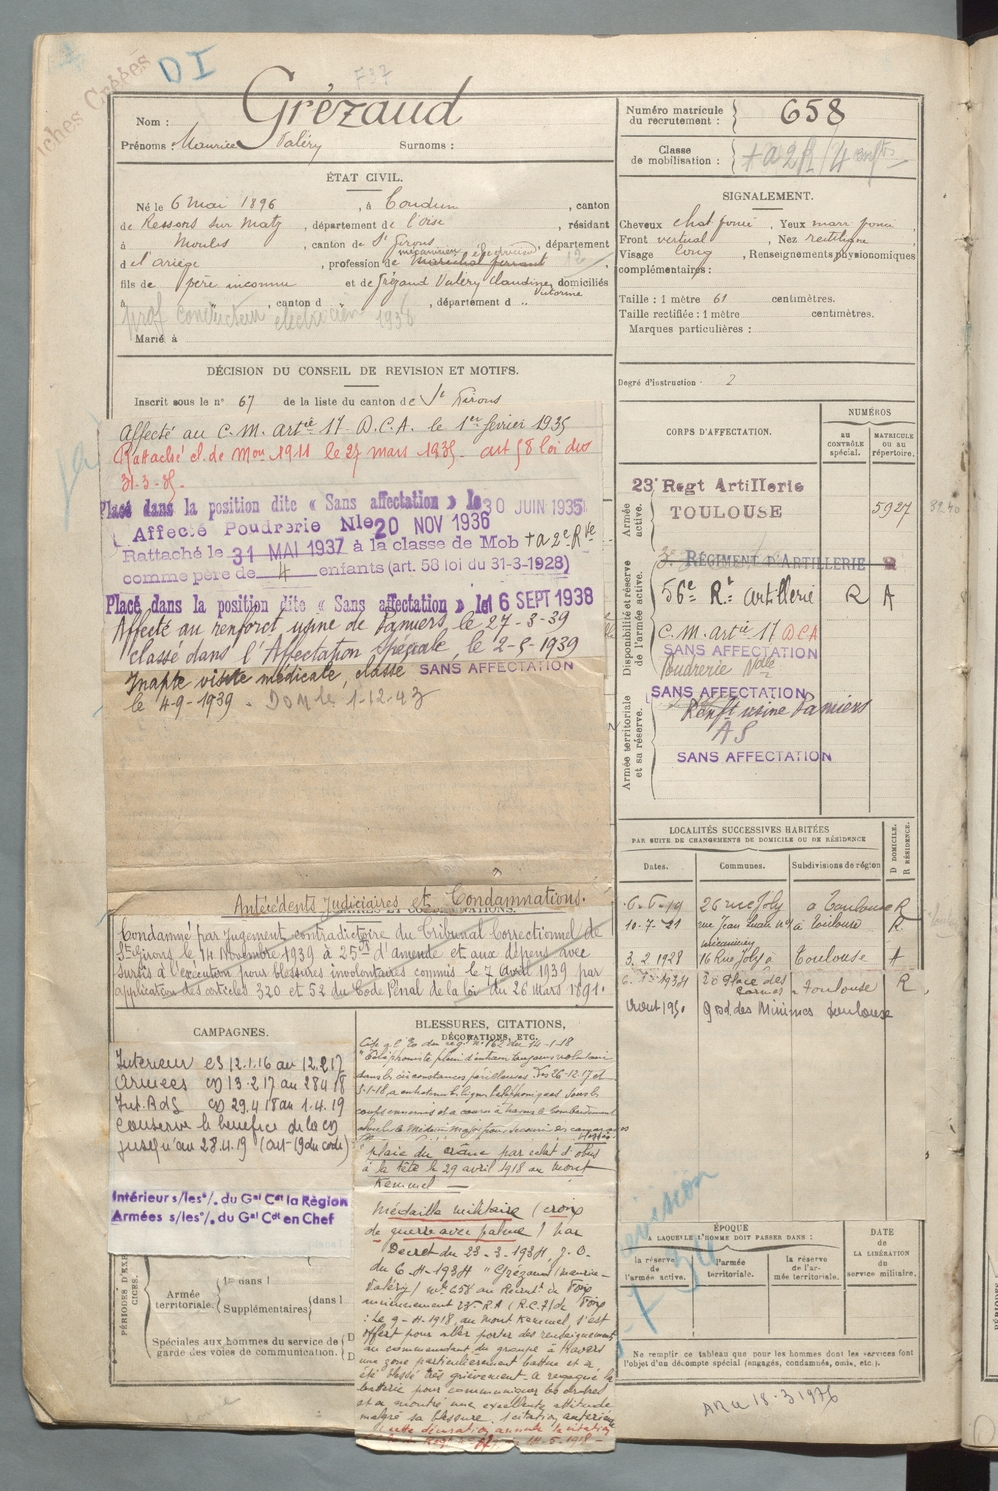 fiches Créées
DI
F37
Nom : Grézaud
Prénoms : Maurice Valéry Surnoms :
Numéro matricule du recrutement : 658
Classe de mobilisation : + a 2 R / 4 enfts
ÉTAT CIVIL.
Né le 6 mai 1896, à Coudun, canton
de Ressons sur Matz, département de l'oise, résidant
à Moulis, canton de St Girons, département
d e l'ariège, profession de maréchal ferrant
mécanicien électricien
fils de père inconnu et de Grézaud Valéry Claudine domiciliés
Victorine
à " , canton d " , département d "
prof conducteur électricien 1936
Marié à
SIGNALEMENT.
Cheveux chat foncé, Yeux marr foncé,
Front vertical, Nez rectiligne,
Visage long, Renseignements physionomiques
complémentaires :
Taille : 1 mètre 61 centimètres.
Taille rectifiée : 1 mètre centimètres.
Marques particulières :
Degré d'instruction · 2
DÉCISION DU CONSEIL DE REVISION ET MOTIFS.
Inscrit sous le n° 67 de la liste du canton de St Girons
Affecté au C. M. artie 17 D.C.A. le 1er février 1935
Rattaché cl de Mon 1911 le 27 mars 1935. art 58 loi du
31-3-
Placé dans la position dite « Sans affectation » le 30 JUIN 1935
Affecté Poudrerie Nle 20 NOV 1936
Rattaché le 31 MAI 1937 à la classe de Mob + a 2e Rve
comme père de 4 enfants (art. 58 loi du 31-3-1928)
Placé dans la position dite « Sans affectation » le 16 SEPT 1938
Affecté au renforct, usine de Pamiers, le 27-3-39
classé dans l'Affectation Spéciale, le 2-5-1939
Inapte visite médicale, classé SANS AFFECTATION
le 4-9-1939. Dom le 1-12-43
CORPS D'AFFECTATION.
NUMÉROS
AU CONTRÔLE spécial.
MATRICULE OU AU répertoire.
Armée active.
23e Regt Artillerie
TOULOUSE
5927
Disponibilité et réserve de l'armée active.
3e RÉGIMENT D'ARTILLERIE
56e Rt artillerie R A
C. M. artie 17 DCA
SANS AFFECTATION
Poudrerie Nale
Armée territoriale et sa réserve.
SANS AFFECTATION
Renft usine Pamiers
AS
SANS AFFECTATION
LOCALITÉS SUCCESSIVES HABITÉES
PAR SUITE DE CHANGEMENTS DE DOMICILE OU DE RÉSIDENCE
Dates. Communes. Subdivisions de région D DOMICILE. R RÉSIDENCE.
26 rue Joly à Toulouse R
10-7-21 rue Jean à Toulouse R
mécanicien
3. 2 1928 16 Rue Joly à Toulouse
20 Place des Carmes Toulouse R
9 Bd des Minimes Toulouse
Antécédents Judiciaires et Condamnations.
Condamné par Jugement contradictoire du Tribunal Correctionnel de
St Girons le 14 Novembre 1939 à 25 frs d'amende et aux dépens avec
sursis à l'exécution pour blessures involontaires commis le 7 Août 1939 par
application des articles 320 et 52 du Code Pénal de la loi du 26 Mars 1891.
CAMPAGNES.
Intérieur CS 12.1.16 au 12.2.17
Armées CD 13.2.17 au 28 4 18
Int. BdG CD 29.4.18 au 1.4.19
Conserve le bénéfice de la CD
jusqu'au 28.4.19 (art-19 du code)
Intérieur s/les %. du Gal Cdt la Région
Armées s/les %. du Gal Cdt en Chef
PÉRIODES D'EXERCICES.
Armée territoriale.
1re dans l
Supplémentaires dans l
Spéciales aux hommes du service de
garde des voies de communication.
BLESSURES, CITATIONS,
DÉCORATIONS, ETC.
"Téléphoniste plein d'entrain toujours volontaire
dans les circonstances périlleuses. Les 26-12-17 et
5-1-18 a entretenu les lignes téléphoniques sous les
coups ennemis et a couru à travers le bombardement
plaie du crâne par éclat d'obus
à la tête le 29 avril 1918 au mont
Kemmel
Médaille militaire (croix
de guerre avec palme) par
Décret du 23-3-1934, J.O.
du 6-4-1934 "Grézaud (Maurice-
Valéry) Mle 658 au Recrt de Foix
anciennement 23e RA (R.C.7) de Foix
: Le 9-4-1918, au Mont Kemmel, s'est
offert pour aller porter des renseignements
au commandant du groupe à travers
une zone particulièrement battue et a
été blessé très grièvement. A regagné la
batterie pour communiquer les ordres
et a montré une excellente attitude
malgré sa blessure. 1 citation antérieure
Cette décoration annule la citation
14-5-1918
revision
ÉPOQUE
A LAQUELLE L'HOMME DOIT PASSER DANS :
la réserve de l'armée active.
l'armée territoriale.
la réserve de l'armée territoriale.
DATE de LA LIBÉRATION du service militaire.
Ne remplir ce tableau que pour les hommes dont les services font
l'objet d'un décompte spécial (engagés, condamnés, omis, etc.).
18.3 1976